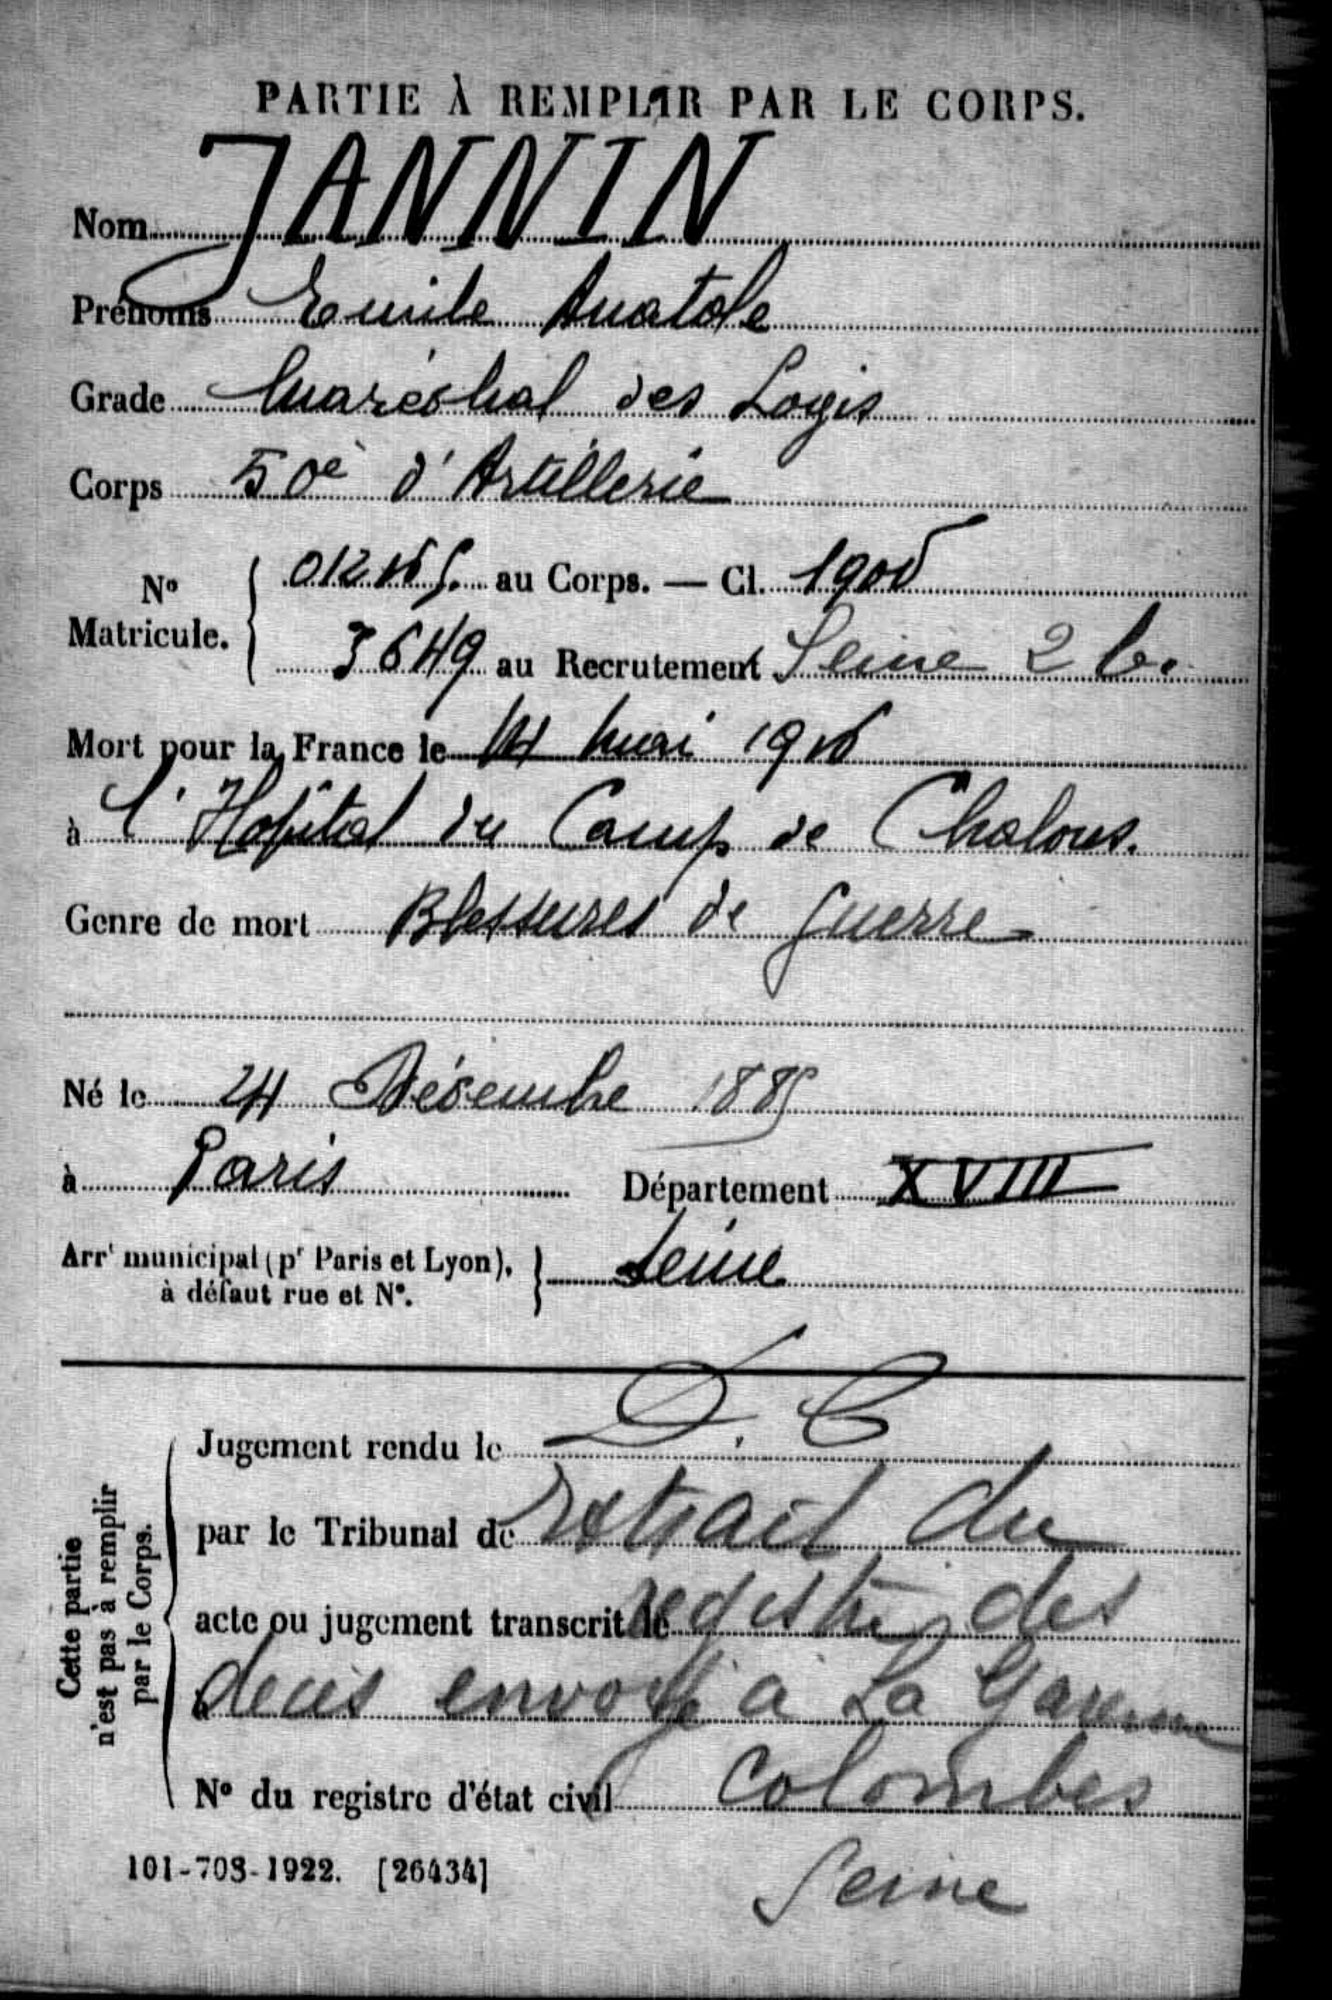 PARTIE À REMPLIR PAR LE CORPS.
Nom JANNIN
Prénoms Emile Anatole
Grade Maréchal des Logis
Corps 50è d'Artillerie
Nº Matricule. au Corps. — Cl.
3649 au Recrutement Seine 2 b.
Mort pour la France le 14 Mai 1916
à l'Hopital du Camp de Chalons.
Genre de mort Blessures de guerre
Né le 24 Décembre 188
à Paris Département XVIII
Arrt municipal (pr Paris et Lyon), à défaut rue et Nº. Seine
Cette partie n'est pas à remplir par le Corps.
Jugement rendu le D. C
par le Tribunal de extrait du
acte ou jugement transcrit le registre des
à deces envoyé à La Garenne
Nº du registre d'état civil Colombes
101-708-1922. [26434] Seine